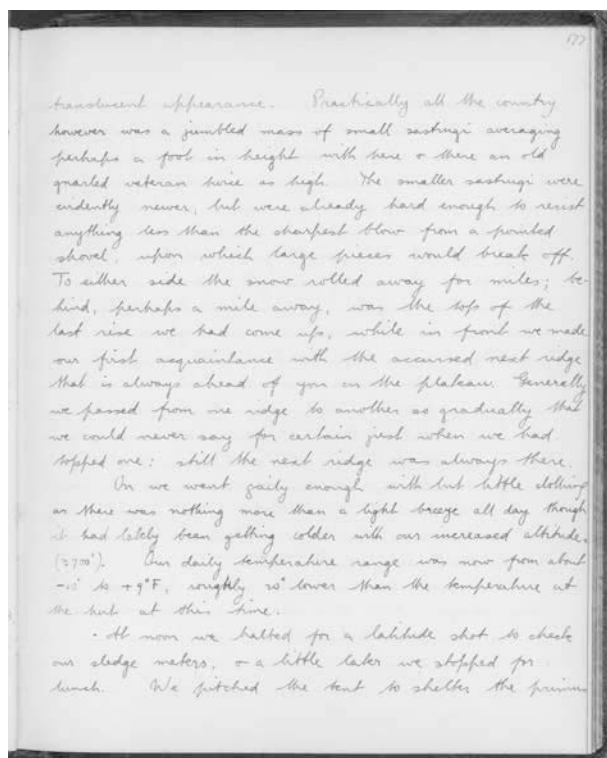 177
translucent appearance. Practically all the country
however was a jumbled mass of small sastrugi averaging
perhaps a foot in height with here & there an old
gnarled veteran twice as high. The smaller sastrugi were
evidently newer, but were already hard enough to resist
anything less than the sharpest blow from a pointed
shovel, upon which large pieces would break off.
To either side the snow rolled away for miles; be-
hind, perhaps a mile away, was the top of the
last rise we had come up, while in front we made
our first acquaintance with the accursed next ridge
that is always ahead of you on the plateau. Generally
we passed from one ridge to another so gradually that
we could never say for certain just when we had
topped one: still the next ridge was always there.
On we went gaily enough with but little clothing
as there was nothing more than a light breeze all day though
it had lately been getting colder with our increased altitude.
Our daily temperature range was now from about
-10° to +9°F, roughly 20° lower than the temperature at
the hut at this time.
At noon we halted for a latitude shot to check
our sledge meters, & a little later we stopped for
lunch. We pitched the tent to shelter the primus